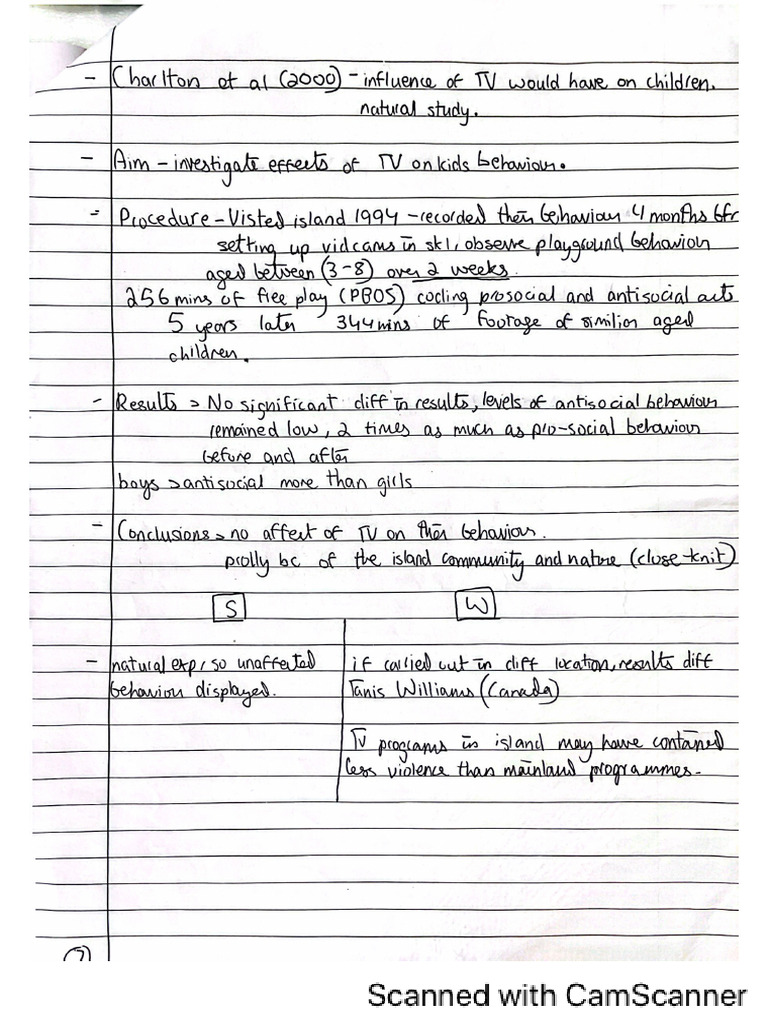 - Charlton et al (2000) - influence of TV would have on children.
natural study.
- Aim - investigate effects of TV on kids behaviour.
- Procedure - Visted island 1994 - recorded their behaviour 4 months bfr
setting up vidcams in skl, observe playground behaviour
aged between (3-8) over 2 weeks.
256 mins of free play (PBOS) coding prosocial and antisocial acts
5 years later 344 mins of footage of similior aged
children.
- Results > No significant diff in results, levels of antisocial behaviour
remained low, 2 times as much as pro-social behaviour
before and after
boys > antisocial more than girls
- Conclusions > no affect of TV on their behaviour.
prolly bc of the island community and nature (close-knit)
S W
- natural exp, so unaffected
behaviour displayed.
if carried out in diff location, results diff
Tanis Williams (Canada)
TV programs in island may have contained
less violence than mainland programmes.
Scanned with CamScanner